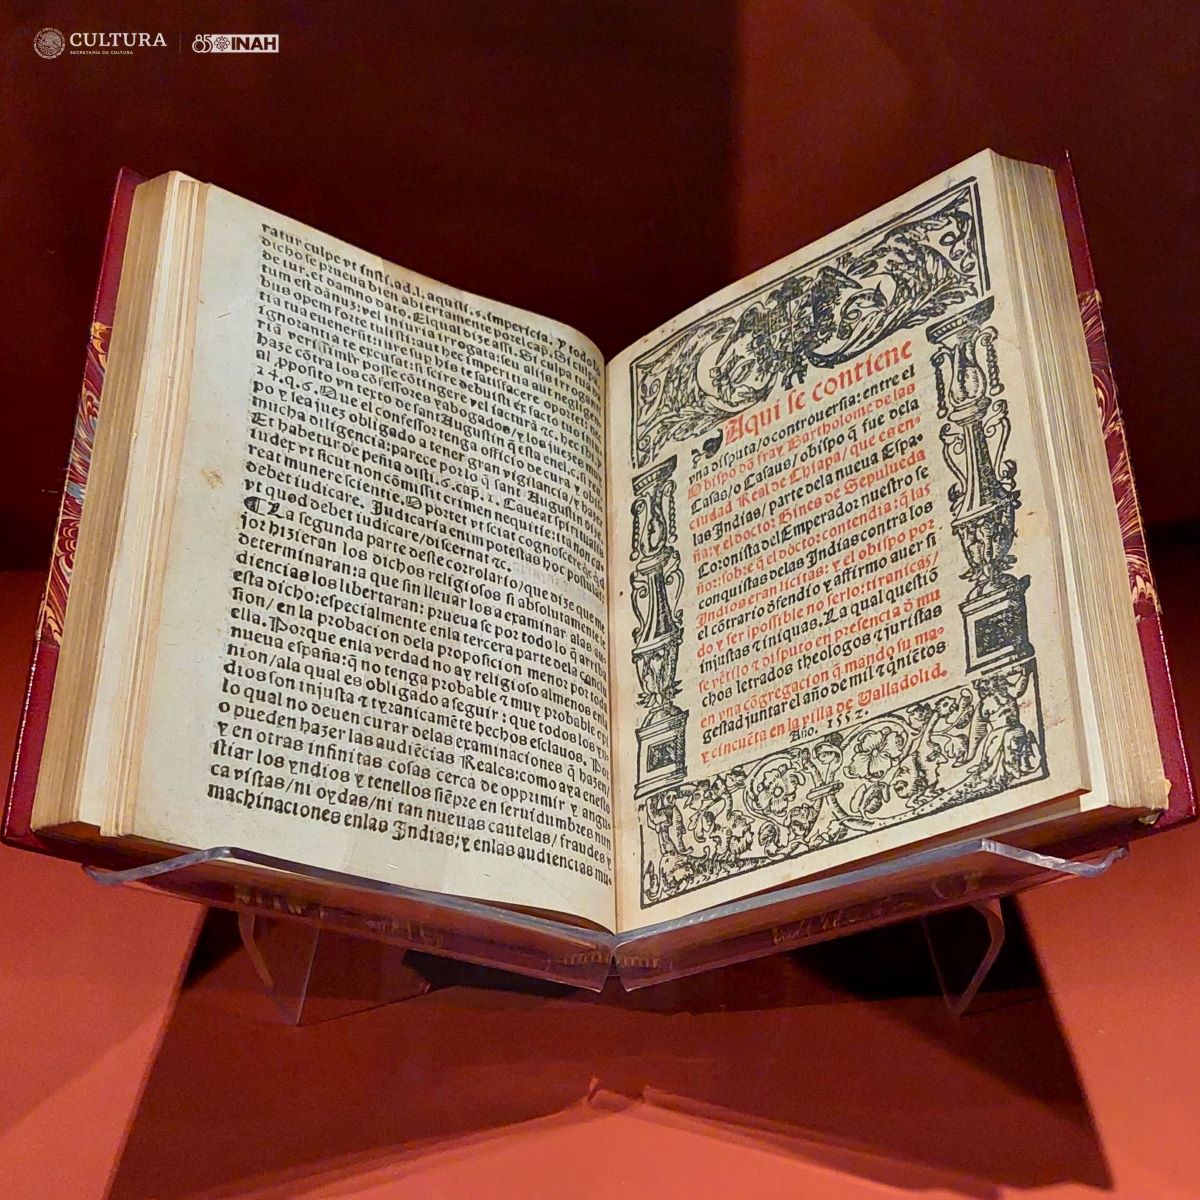 CULTURA
SECRETARÍA DE CULTURA
85 INAH
ratur culpe vt insti. ad. l. aquili. §. impericia. y todo
dicho se prueua bien abiertamente por el cap. Si culpa
de iur. et damno dato. El qual dize assi. Si culpa tua
tum est dãnuz: vel iniuria irrogata: seu alijs irrogan
bus opem forte tulisti: aut hec imperitia aut negligen
tia tua euenerũt: iure sup his te satisfacere oportet: nec
ignorantia te excusat: si scire debuisti ex facto tuo iniu
riã verisimilr posse cõtingere vel iacturã ⁊c.
haze cõtra los cõfessores y abogados/ y los juezes mucho
al pposito vn texto de sant Augustin q̃ esta enel. c. si res.
14. q. 6. Que el confessor tenga officio de cura y obis
po y sea juez obligado a tener gran vigilancia/ y hazer
mucha diligencia: parece por lo q̃ sant Augustin dize.
Et habetur de peñia disti. 6. cap. 1. Caueat spiritualis
iudex vt sicut non cõmisit crimen nequitie: ita non ca-
reat munere scientie. Oportet vt sciat cognoscere q̃d
debet iudicare. Judiciaria enim potestas hoc postulat
vt quod debet iudicare/ discernat ⁊c.
¶ La segunda parte deste corrolario/ que dize que me
jor hizieran los dichos religiosos si absolutamente lo
determinaran: a que sin lleuar los a examinar alas au-
diencias los libertaran: prueua se por todo lo q̃ arriba
esta dicho: especialmente enla tercera parte dela conclu
sion/ en la probacion dela proposicion menor: por toda
ella. Porque enla verdad no ay religioso almenos enla
nueua españa: q̃ no tenga probable ⁊ muy probable opi
nion/ ala qual es obligado a seguir: que todos los yn
dios son injusta ⁊ tyranicamẽte hechos esclauos. Por
lo qual no deuen curar delas examinaciones q̃ hazen/
o pueden hazer las audiẽcias Reales: como aya enesto
y en otras infinitas cosas cerca de opprimir y angu-
stiar los yndios y tenellos siẽpre en seruidumbres nun
ca vistas/ ni oydas/ ni tan nueuas cautelas/ fraudes y
machinaciones enlas Jndias: y enlas audiencias mu-
Aqui se contiene
vna disputa/ o controuersia: entre el
Obispo dõ fray Bartholome de las
Casas/ o Casaus/ obispo q̃ fue dela
ciudad Real de Chiapa/ que es en-
las Indias/ parte dela nueua Espa-
ña: y el doctor Gines de Sepulueda
Coronista del Emperador nuestro se
ñor: sobre q̃ el doctor contendia: q̃ las
conquistas delas Indias contra los
Indios eran licitas: y el obispo por
el cõtrario dfendio y affirmo auer si
do y ser ĩpossible no serlo: tiranicas/
injustas ⁊ iniquas. La qual questiõ
se vẽtilo ⁊ disputo en presencia d mu
chos letrados theologos ⁊ juristas
en vna cõgregacion q̃ mando su ma-
gestad juntar el año de mil ⁊ qniẽtos
y cincuẽta en la villa de Valladolid.
Año. 1552.